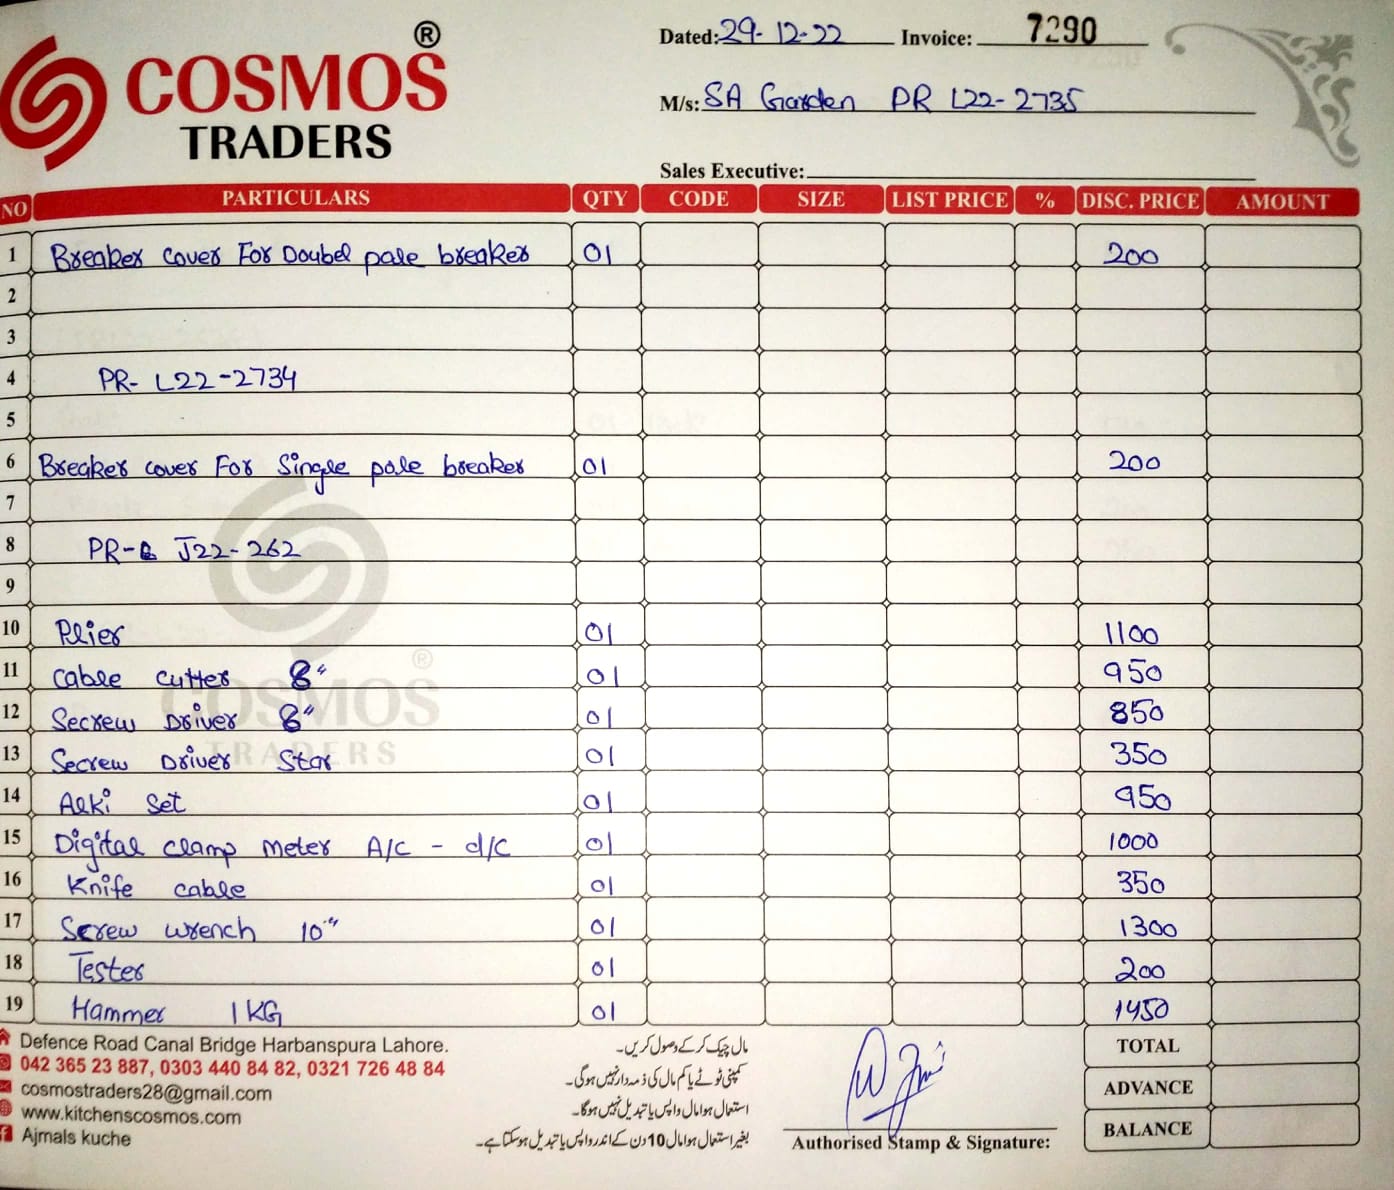 ®
COSMOS
TRADERS
Dated: 29-12-22 Invoice: 7290
M/s: SA Garden PR L22-2735
Sales Executive:
NO PARTICULARS QTY CODE SIZE LIST PRICE % DISC. PRICE AMOUNT
1 Breaker cover For Doubel pale breaker 01 200
2
3
4 PR- L22-2734
5
6 Breaker cover For Single pale breaker 01 200
7
8 PR- J22-262
9
10 Plier 01 1100
11 Cable cutter 8" 01 950
12 Secrew Driver 8" 01 850
13 Secrew Driver Star 01 350
14 Alki Set 01 950
15 Digital clamp meter A/C - d/C 01 1000
16 Knife cable 01 350
17 Screw wrench 10" 01 1300
18 Tester 01 200
19 Hammer 1KG 01 1450
®
COSMOS
TRADERS
TOTAL
ADVANCE
BALANCE
Defence Road Canal Bridge Harbanspura Lahore.
042 365 23 887, 0303 440 84 82, 0321 726 48 84
cosmostraders28@gmail.com
www.kitchenscosmos.com
Ajmals kuche
مال چیک کر کے وصول کریں۔
کمپنی ٹوٹے یا کم مال کی ذمہ دار نہیں ہوگی۔
استعمال ہوا مال واپس یا تبدیل نہیں ہوگا۔
بغیر استعمال ہوا مال 10 دن کے اندر واپس یا تبدیل ہوسکتا ہے۔
Authorised Stamp & Signature: